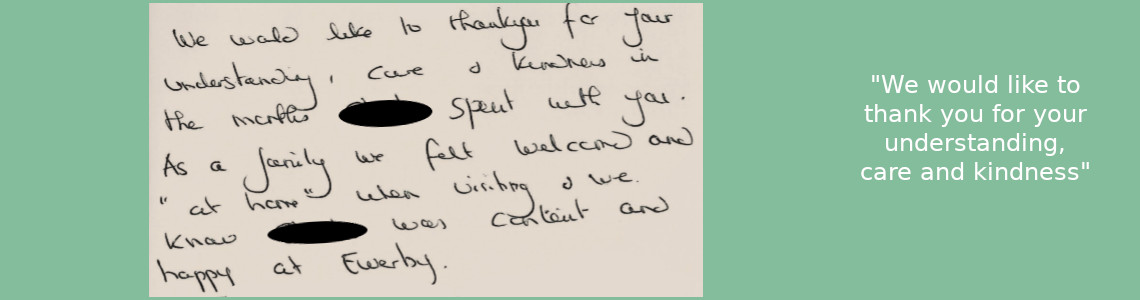 We would like to thankyou for your
understanding, care & kindness in
the months spent with you.
As a family we felt welcomed and
"at home" when visiting & we
know was content and
happy at Ewerby.
"We would like to
thank you for your
understanding,
care and kindness"